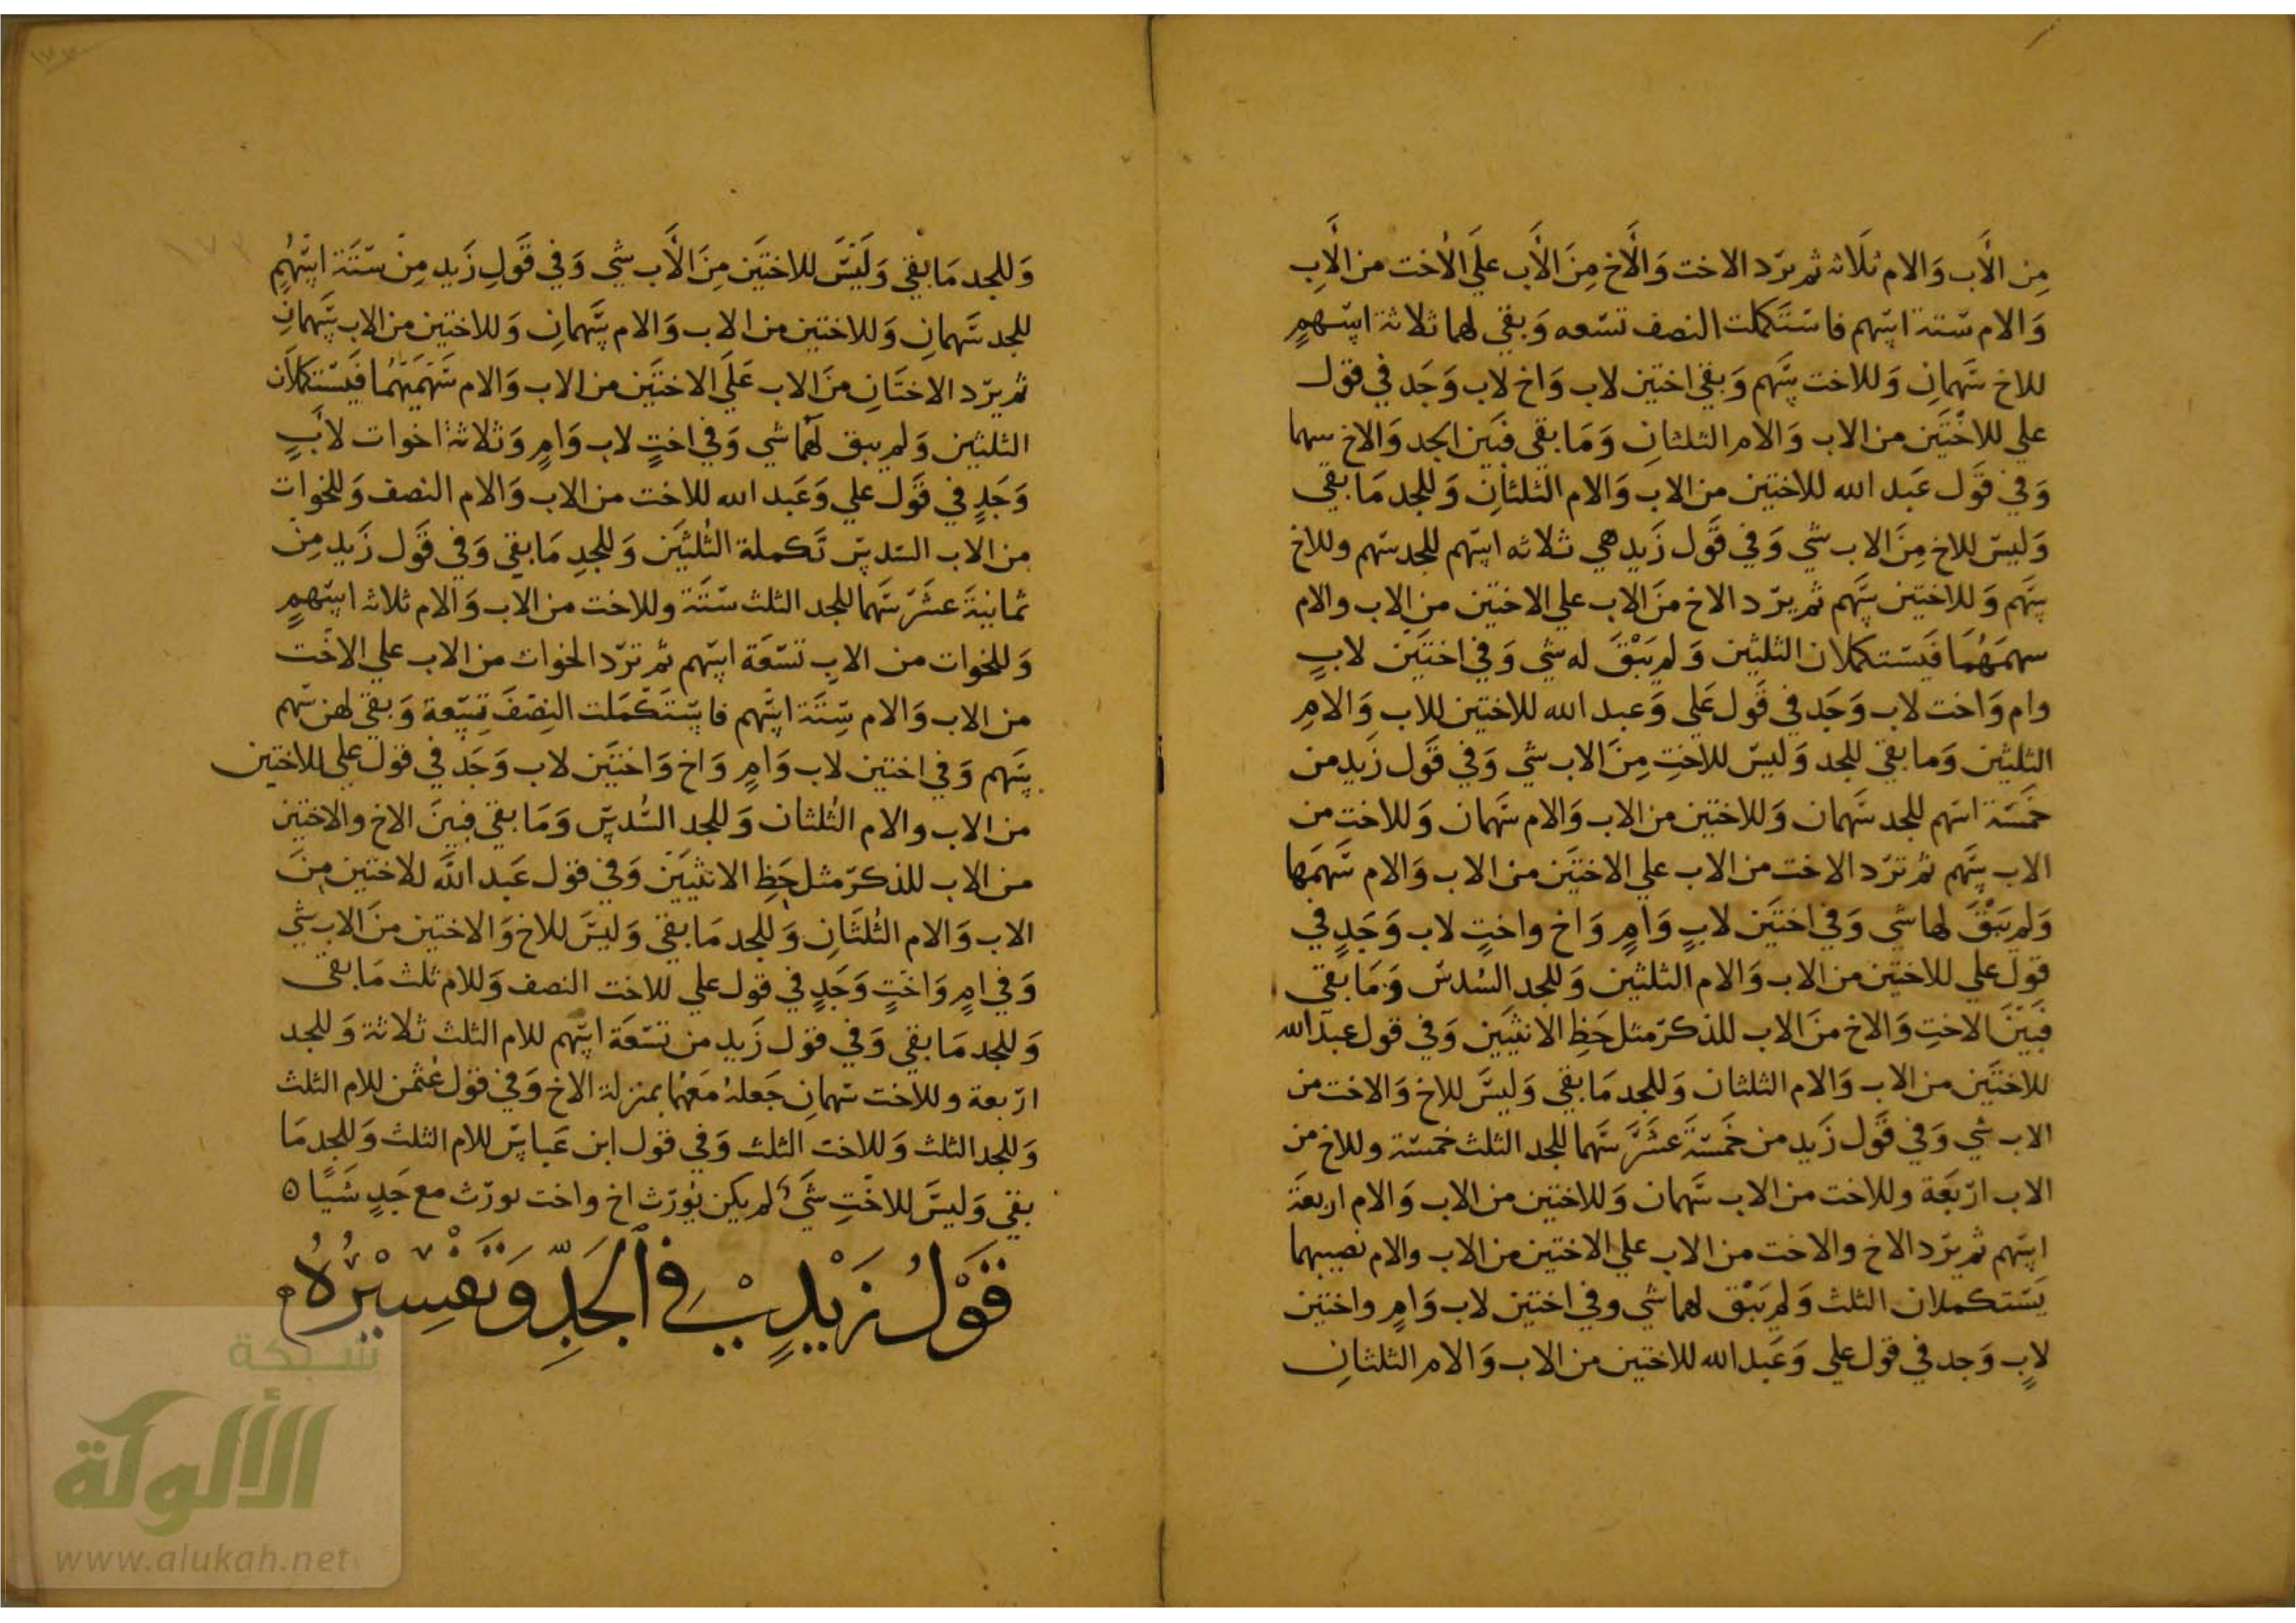 مِن الأَب وَالام ثلَاثه ثم يرّد الاخت وَالَأخ مِنَ الأَب علَي الأخت من الأَبِ
وَالام ستتة اسهم فاستَكملت النصف تسعه وَبقي لهما ثلاثة اسهمٍ
للاخ سَهمانِ وَللاخت سَهم وَبقي اختين لاب وَاخ لاب وَجَد في قول
علي للاختَين من الاب وَالام الثلثانِ وَمَا بقي فبَين الجد وَالاخ سهما
وَفي قوَل عَبد الله للاختين من الاب وَالام الثلثانِ وَللجد مَا بقي
وَليسَ للاخ مِنَ الاب شي وَفي قوَل زَيد هي ثلاثه اسهم للجد سهم وللاخ
سَهم وَللاختين سَهم ثم يرّد الاخ منَ الاب علي الاختين من الاب والام
سهمَهُمَا فَيسَتكملان الثلثين وَلم يَبْقَ له شي وَفي اختَين لابٍ
وام وَاخت لاب وَجَد في قَول عَلي وَعبد الله للاختين للاب وَالامِ
الثلثين وَما بقي للجد وَليسَ للاختِ مِنَ الاب شي وَفي قوَل زَيد من
خمَسَة اسهم للجد سَهمان وَللاختين من الاب وَالام سَهمان وَللاخت من
الاب سَهم ثم ترّد الاخت من الاب علي الاختَين من الاب وَالام سَهمَها
وَلم يَبْقَ لها شي وَفي اختَين لابٍ وَامٍ وَاخ واختٍ لاب وَجَدٍ في
قوَل علي للاختَين من الاب وَالام الثلثين وَللجد السُدسَ وَمَا بقي
فبَيَن الاختِ وَالاخ منَ الاب للذكرّ مثل حَظِ الانثيَين وَفي قول عبد الله
للاختَين من الاب وَالام الثلثان وَللجد مَا بقي وَليسَ للاخ وَالاخت من
الاب شي وَفي قوَل زَيد من خمَسَةَ عشَرَ سَهما للجد الثلث خمسَة وللاخ من
الاب ارّبَعَة وللاخت من الاب سَهمان وَللاختين من الاب وَالام اربعَة
اسَهم ثم يرّد الاخ والاخت من الاب علي الاختين من الاب والام نصيبهما
يَستكملان الثلث وَلم يَبْق لهما شي وفي اختين لاب وَامٍ واختين
لابٍ وَجد في قول علي وَعَبد الله للاختين من الاب وَالام الثلثانِ
وَللجد مَا بقي وَلَيسَ للاختَين مِنَ الأَب شي وَفي قَولِ زَيد مِنْ ستَتة اسَهُمٍ
للجد سَهمانِ وَللاختين من الاب وَالام سَهمانِ وَللاختين من الاب سَهمانِ
ثم يرّد الاختَانِ منَ الاب عَلَي الاختَين من الاب وَالام سَهمَيهُما فَيسَتكملَان
الثلثين وَلم يبق لَهما شي وَفي اختٍ لاب وَامٍ وَثلاثة اخوات لأَبٍ
وَجَدٍ في قوَل علي وَعَبد الله للاخت من الاب وَالام النصف وَللخوات
من الاب السَدسَ تَكملة الثُلثَين وَللجدِ مَا بقي وَفي قَول زَيد مِن
ثمانيةَ عشَرَ سَهما للجد الثلث ستَة وللاخت من الاب وَالام ثلاثه اسهمٍ
وَللخوات من الابِ تسعَة اسَهم ثم ترّد الخوات من الاب علي الاخت
من الاب وَالام سِتَة اسَهم فاسَتَكمَلت النِصَفَ تِسَعة وَبقي لهن سَهم
سَهم وَفي اختين لاب وَامٍ وَاخ وَاختَين لاب وَجَد في قول علي للاختين
من الاب والام الثُلثان وَللجد السُدسَ وَمَا بقي فبينَ الاخ والاختين
من الاب للذكرّ مثل حَظِ الانثيَين وَفي قول عَبد اللَّه للاختين مِنَ
الاب وَالام الثُلثَانِ وَللجد مَا بقي وَليسَ للاخ وَالاختين منَ الاب شي
وَفي امٍ وَاختٍ وَجَدٍ في قول علي للاخت النصف وَللام ثلث مَا بقي
وَللجد مَا بقي وَفي قول زَيد من تسعَة اسَهم للام الثلث ثلاثة وَللجد
ارّبعة وللاخت سَهمانِ جَعلهُ مَعَهُما بمنزلة الاخ وَفي قول عُثمن للام الثلث
وَللجد الثلث وَللاخت الثلث وَفي قول ابن عَباسَ للام الثلث وَللجد مَا
بقي وَليسَ للاختِ شَيء لم يكن يُوَرّث اخ واخت يورّث مع جَدٍ شَيًا ٥
قَوْلُ زَيْدٍ فِي الجَدِّ وَتَفسِيْرُهُ
شبكة
الألوكة
www.alukah.net